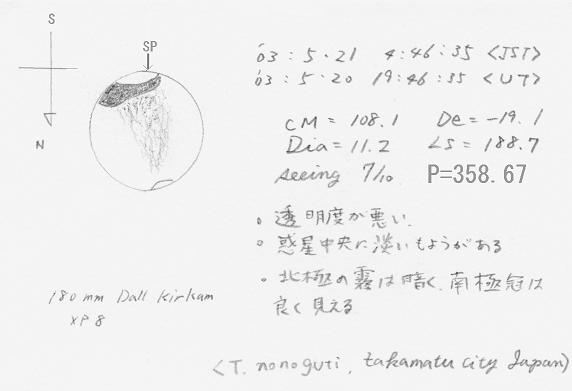 S
SP
N
'03 : 5 · 21 4 : 46 : 35 <JST>
'03 : 5 · 20 19 : 46 : 35 <UT>
CM = 108.1 De = -19.1
Dia = 11.2 LS = 188.7
seeing 7/10 P=358.67
。透明度が悪い.
。惑星中央に淡いもようがある
。北極の霧は暗く、南極冠は
良く見える
180 mm Dall Kirkam
XP 8
<T. nonoguti, takamatu city Japan>